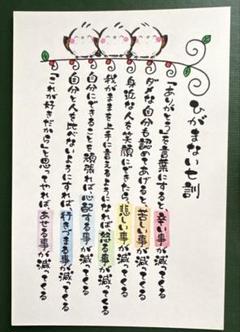 ひがまない七訓
「ありがとう」を言葉にすると、辛い事が減ってくる
ダメな自分も認めてあげると、苦しい事が減ってくる
身近な人を笑顔にできたら、悲しい事が減ってくる
我がままを上手に言えるようになれば、怒る事が減ってくる
自分にできることを頑張れば、心配する事が減ってくる
自分と人を比べないようにすれば、行きづまる事が減ってくる
「これが好きだから」と思ってやれば、あせる事が減ってくる